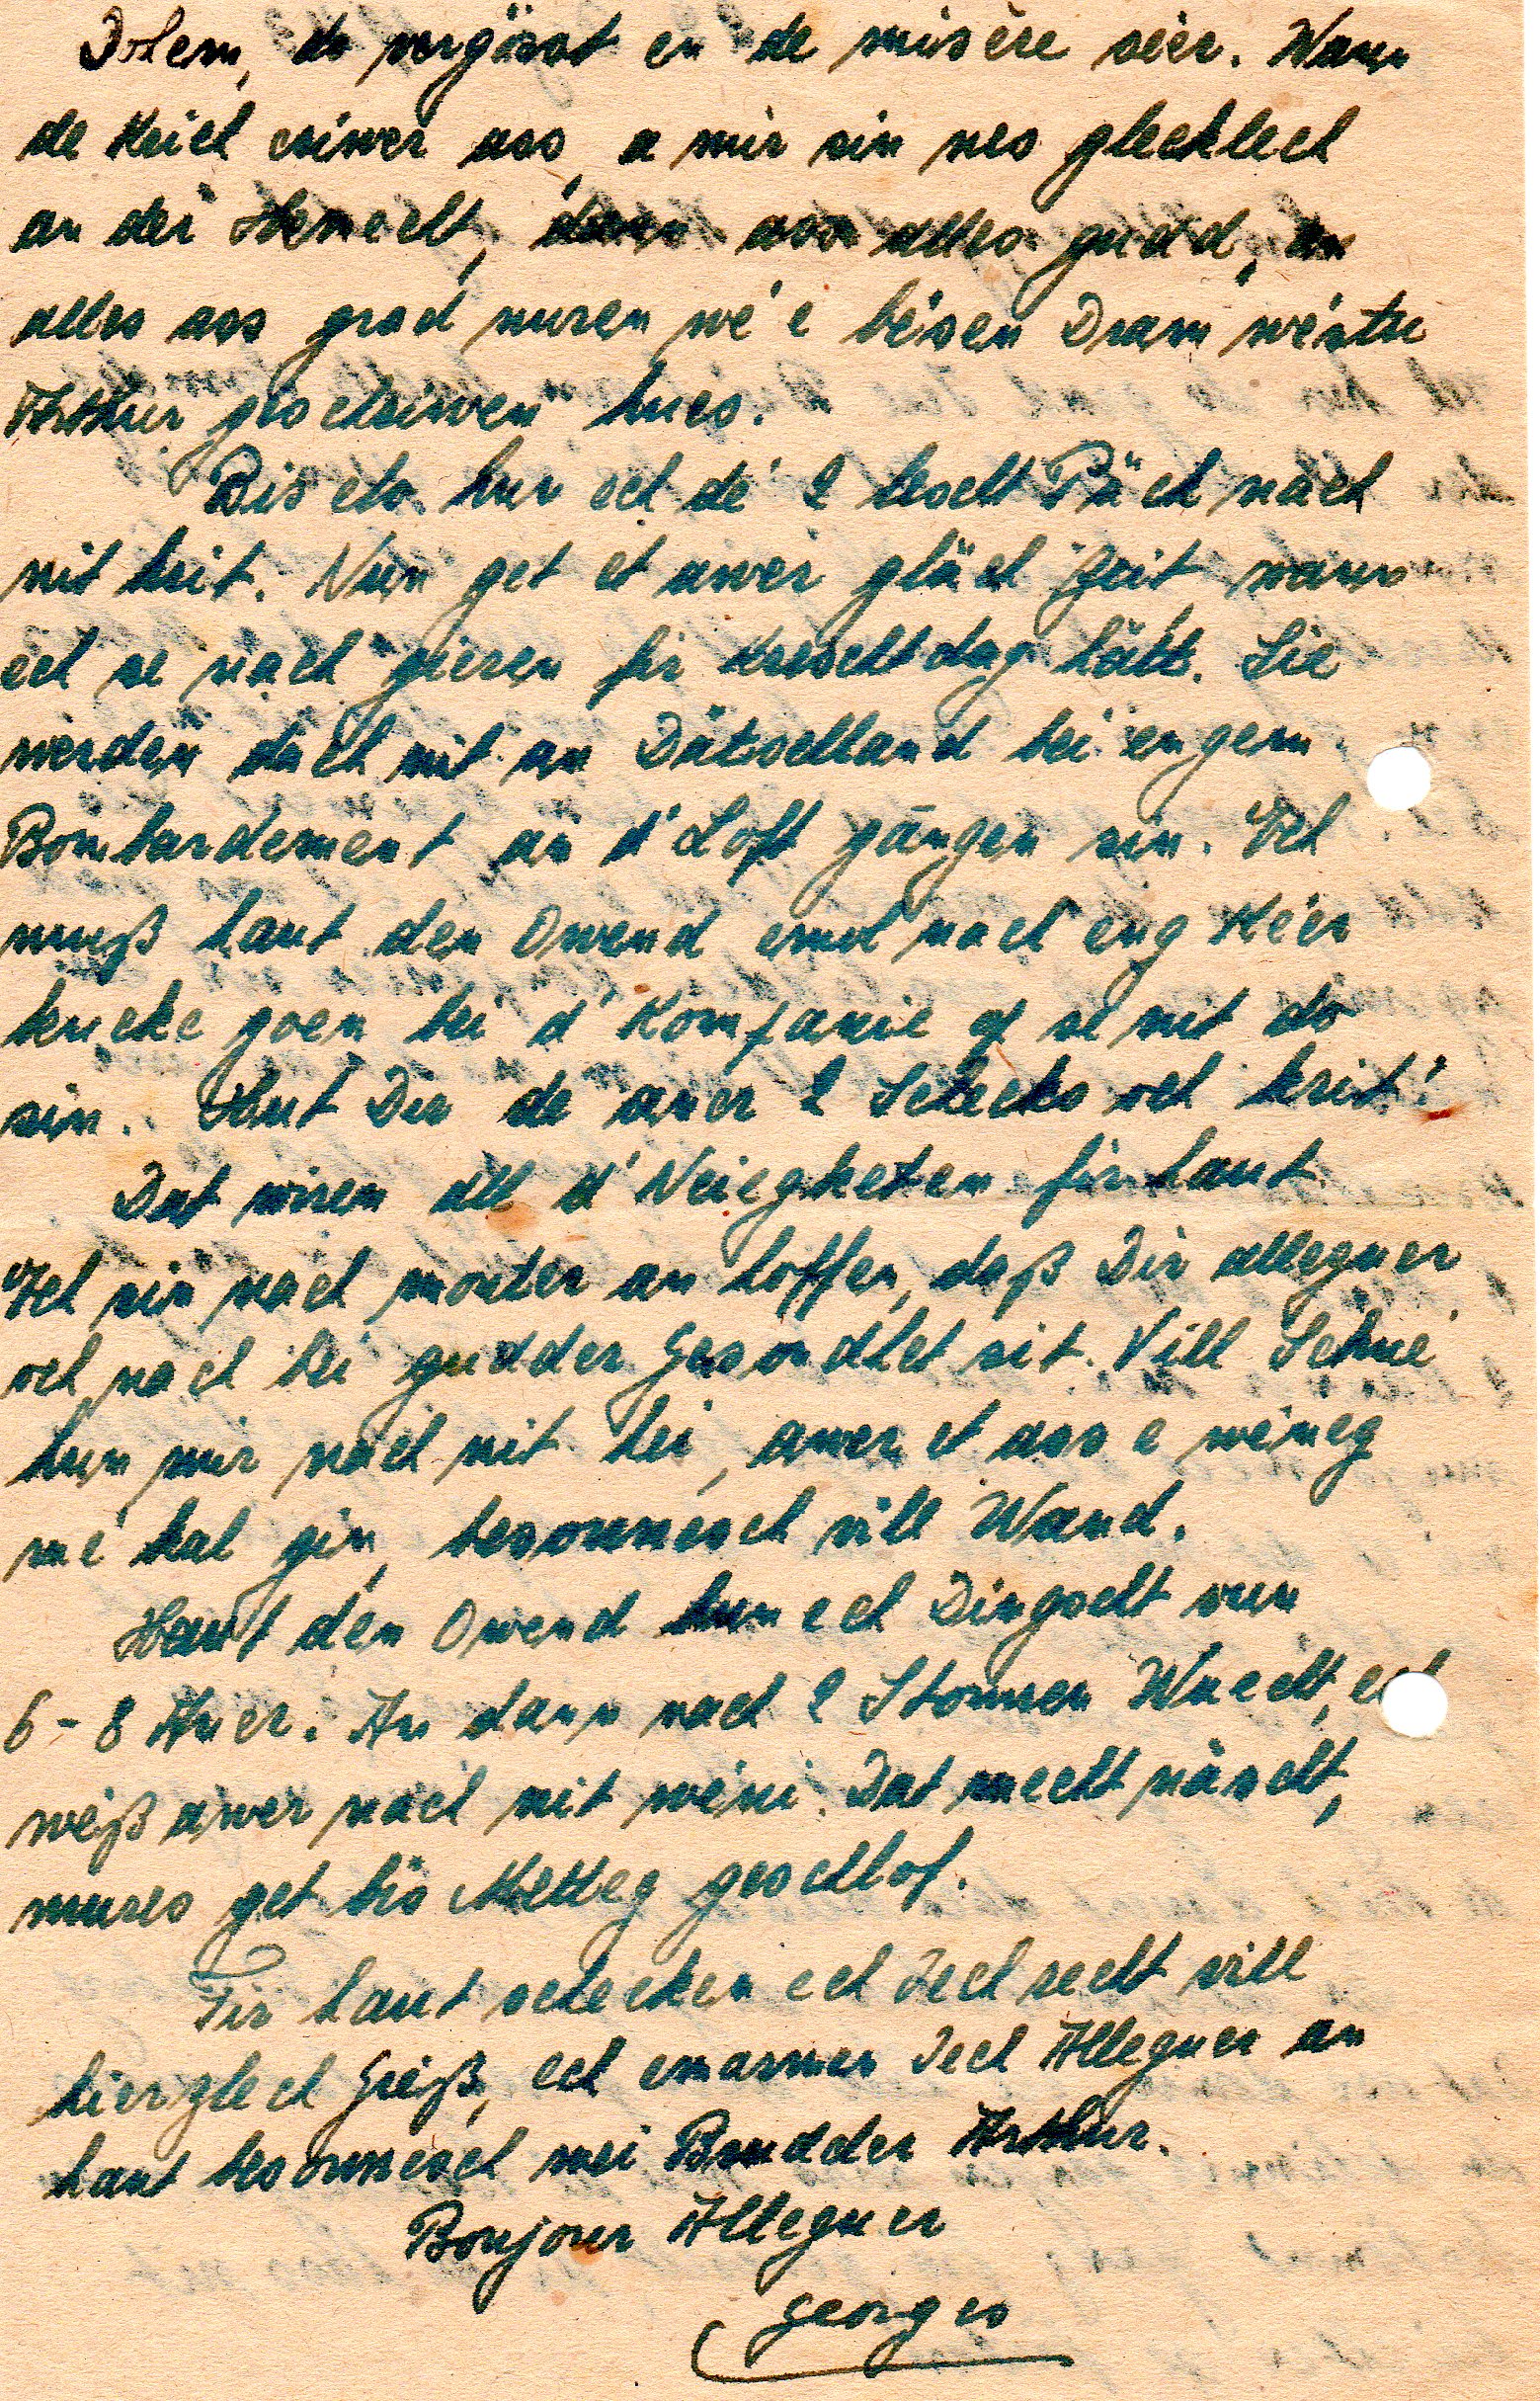 Dohem, do vergësst en de misère séier. Wann
de Kéich eriwer ass, a mir sin nes glecklech
an der Hemecht, dann ass alles gudd, an
alles ass grad nuren wé e bésen Dram wéstu
Arthur geschriwen hues.
Bis elo hun ech dé 2 lescht Päch nach
nit krit. Nun get et awer gläch Zeit wann
ech se nach gieren fir Krëschtdag hätt. Sie
werden dach nit an Däitschland bei engem
Bombardement an d'Loft gangen sin. Ech
muß haut den Owend emol nach eng Kéier
kucke goen bei d'Kompanie of se nit do
sin. Hut Dir dé aner 2 Schecks och krit!
Dat wiren all d'Neiegketen fir haut.
Ech sin nach monter an hoffen, daß Dir alleguer
och nach bei gudder Gesondhet sit. Vill Schné
hun mir nach nit hei, awer et ass e wéineg
mé kal gin, besonnesch vill Wand.
Haut den Owend hun ech Dingscht vun
6-8 Auer. An dann nach 2 Stonnen Wuecht, ech
wéß awer nach nit wéini. Dat mecht näischt,
mures get bis Mëtteg geschlof.
Fir haut schecken ech Iech recht vill
hierzlech Gréiß, ech emarmen Iech Alleguer an
haut besonnesch mei Brudder Arthur.
Bonjour Alleguer
Georges